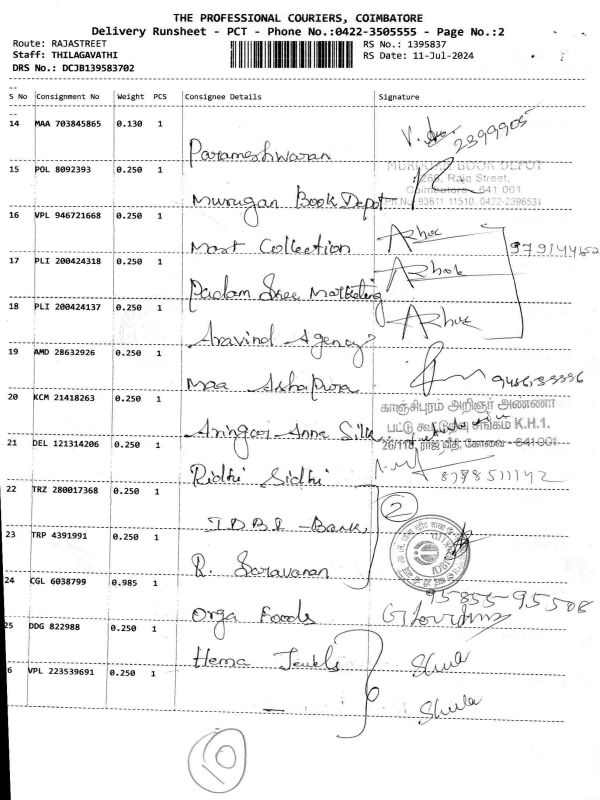 THE PROFESSIONAL COURIERS, COIMBATORE
Delivery Runsheet - PCT - Phone No.:0422-3505555 - Page No.:2
Route: RAJASTREET RS No.: 1395837
Staff: THILAGAVATHI RS Date: 11-Jul-2024
DRS No.: DCJB139583702
S No Consignment No Weight PCS Consignee Details Signature
14 MAA 703845865 0.130 1 Parameshwaran 2399905
15 POL 8092393 0.250 1 Murugan Book Depot
MURUGAN BOOK DEPOT
268, Raja Street,
Coimbatore - 641 001
16 VPL 946721668 0.250 1 Most Collection
17 PLI 200424318 0.250 1 Padam Sree Marketing
18 PLI 200424137 0.250 1 Aravind Agency
19 AMD 28632926 0.250 1 Maa Ashapura
20 KCM 21418263 0.250 1 Aringar Anna Silks
காஞ்சிபுரம் அறிஞர் அண்ணா
பட்டு கூட்டுறவு சங்கம் K.H.1.
26/118, ராஜ வீதி, கோவை - 641001
21 DEL 121314206 0.250 1 Ridhi Sidhi 8778511142
22 TRZ 280017368 0.250 1 I.D.B.I - Bank 2
23 TRP 4391991 0.250 1 R. Saravanan
24 CGL 6038799 0.985 1 Orga Foods 95855-95508
25 DDG 822988 0.250 1 Hema Jewels
VPL 223539691 0.250 1
10